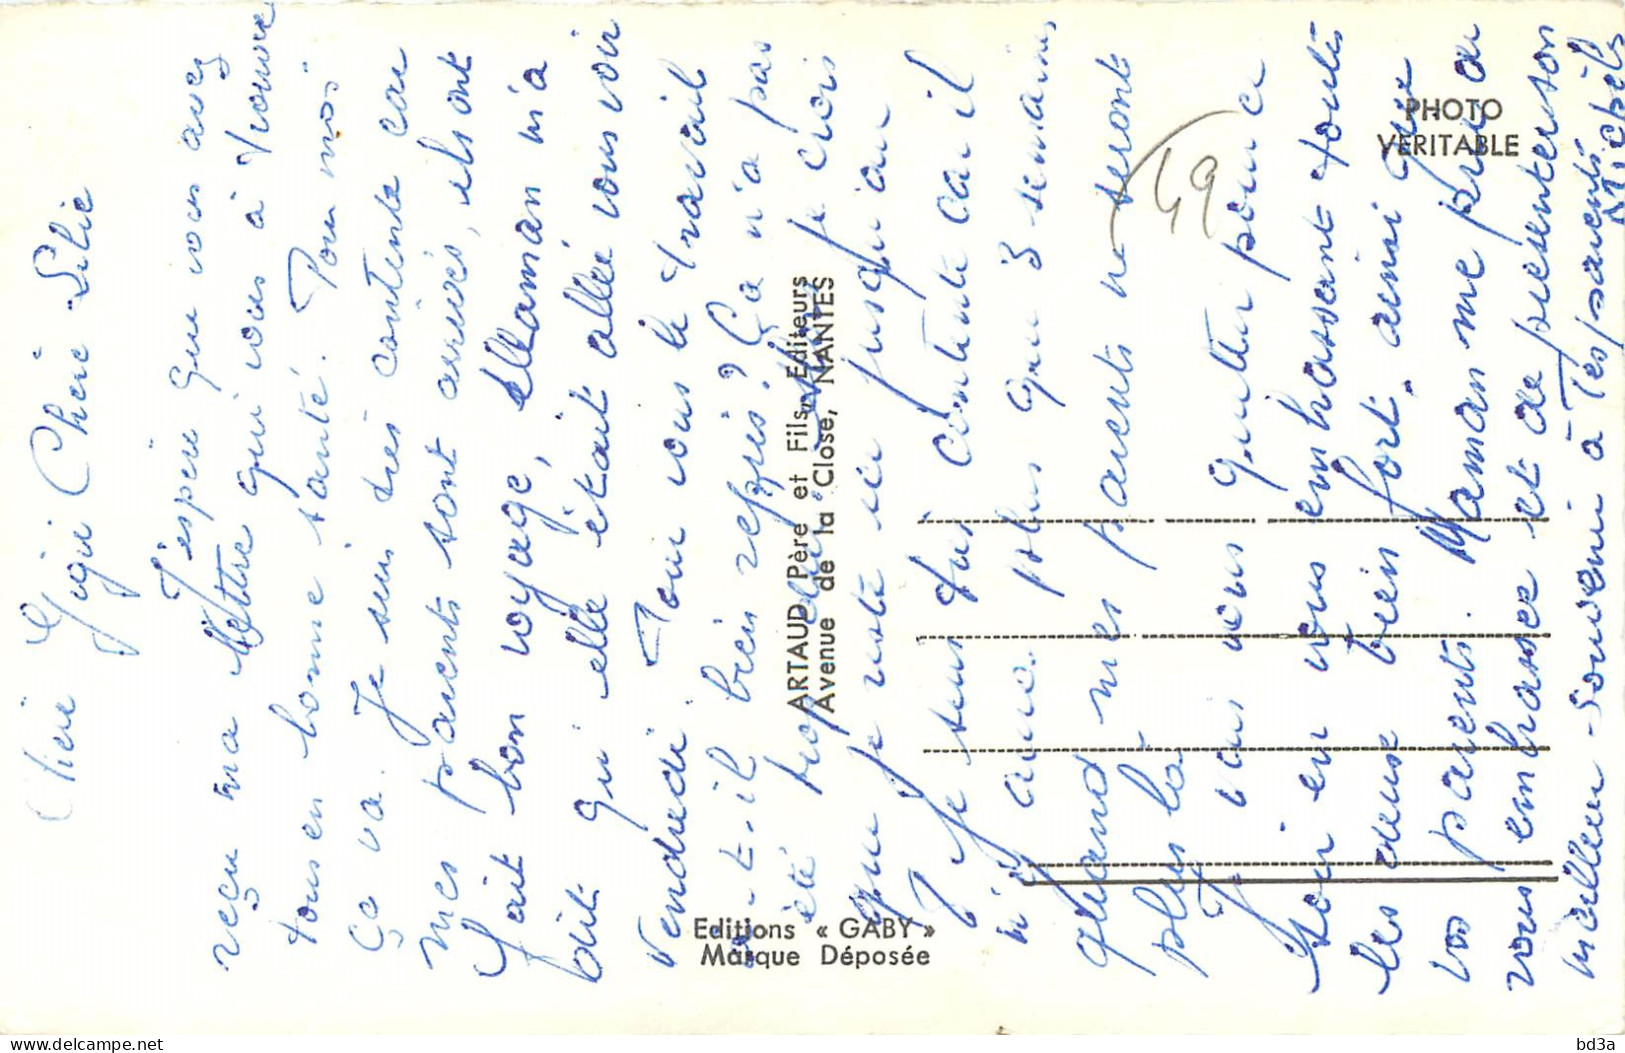 Chère Gigi Chère Lilie
J'espère que vous avez
reçu ma lettre qui vous à trouvé
tous en bonne santé. Pour moi
ça va. Je suis très contente car
mes parents sont arrivés, ils ont
fait bon voyage, Maman m'a
dit qu'elle était allée vous voir
vendredi. Pour vous le travail
a-t-il bien repris? Ça n'a pas
été trop
que je reste ici jusqu'au
Je suis contente car il
n'y aura plus que 3 semaines
quand mes parents ne seront
plus là
Je vais vous quitter pour ce
soir en vous embrassant toutes
les deux bien fort, ainsi que
vos parents. Maman me prie de
vous embrasser et de présenter son
meilleur souvenir à tes parents
Michèle
PHOTO
VERITABLE
49
ARTAUD Père et Fils, Editeurs
Avenue de la Close, NANTES
Editions « GABY »
Marque Déposée
Delcampe.net
bd3a